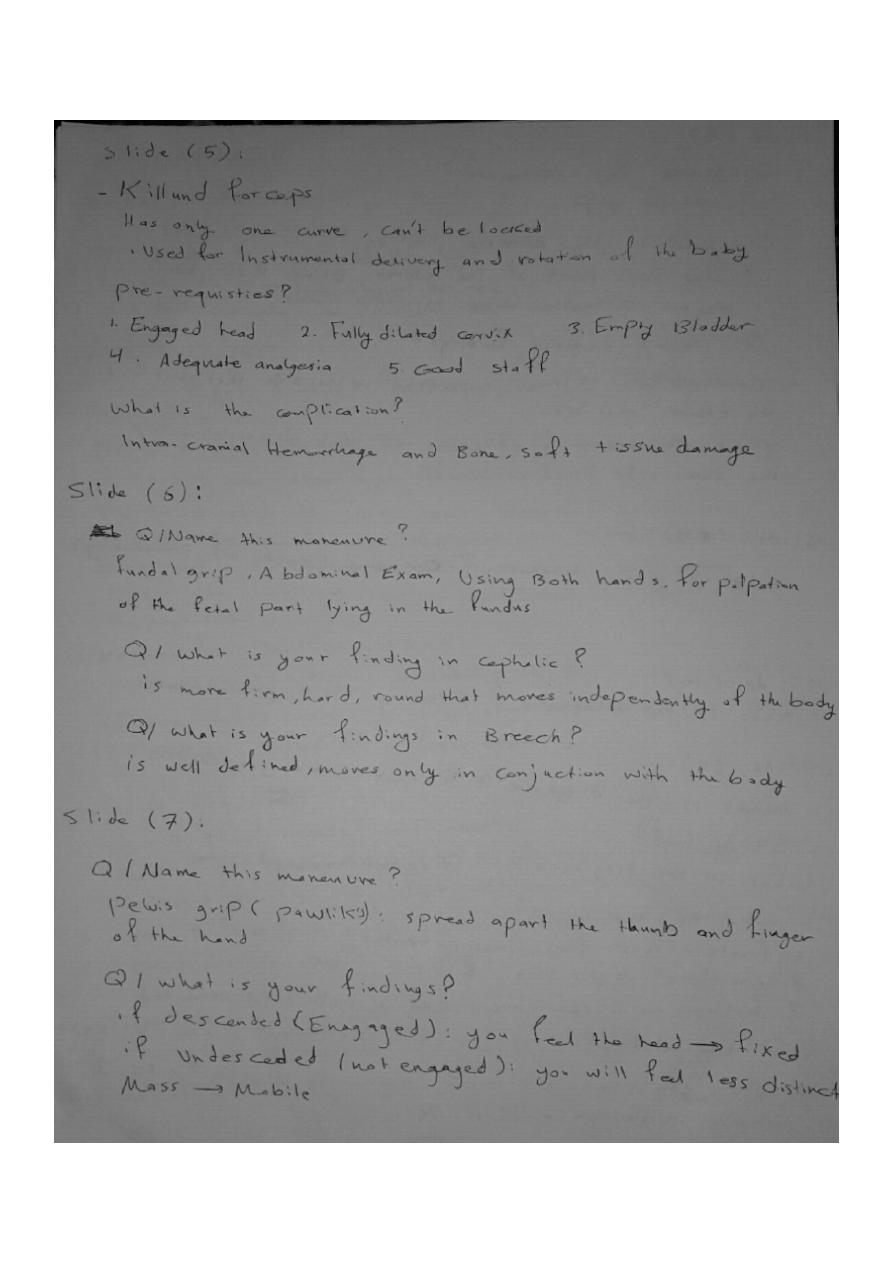 Slide (5):
- Killund forceps
Has only one curve, can't be locked
. Used for Instrumental delivery and rotation of the baby
pre-requisties?
1. Engaged head 2. Fully dilated cervix 3. Empty Bladder
4. Adequate analgesia 5. Good staff
What is the complication?
Intra-cranial Hemorrhage and Bone, soft tissue damage
Slide (6):
Q/Name this manenure?
fundal grip, Abdominal Exam, Using Both hands, for palpation
of the fetal part lying in the fundus
Q/ what is your finding in cephalic?
is more firm, hard, round that moves independently of the body
Q/ what is your findings in Breech?
is well defined, moves only in conjuction with the body
Slide (7):
Q/Name this manenure?
pelvis grip (pawlik's): spread apart the thumb and finger
of the hand
Q/ what is your findings?
if descended (Enagaged): you feel the head → fixed
if undesceded (not engaged): you will feel less distinct
Mass → Mobile